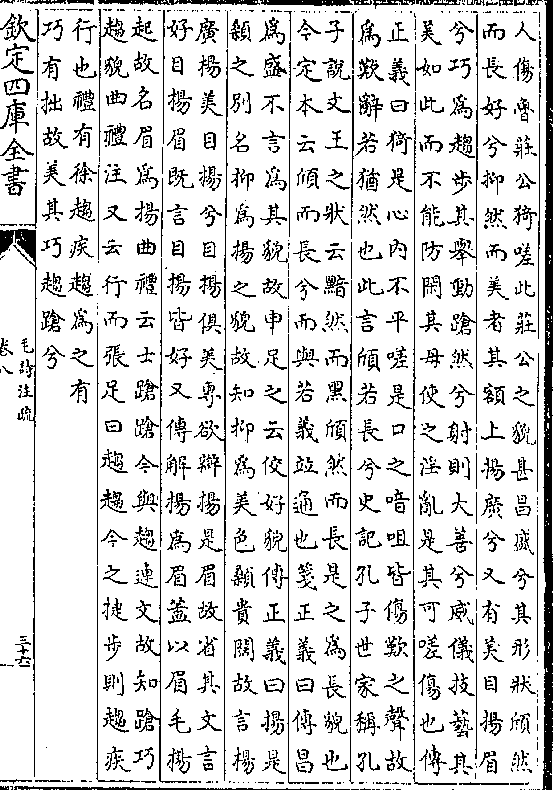 人傷魯莊公猗嗟此莊公之貌甚昌盛兮其形狀頎然
而長好兮抑然而美者其額上揚廣兮又有美目揚眉
兮巧為趨步其舉動蹌然兮射則大善兮威儀技藝其
美如此而不能防閑其母使之淫亂是其可嗟傷也傳
正義曰猗是心內不平嗟是口之喑咀皆傷歎之聲故
為歎辭若猶然也此言頎若長兮史記孔子世家稱孔
子說文王之狀云黯然而黑頎然而長是之為長貌也
今定本云頎而長兮而與若義竝通也箋正義曰傳昌
為盛不言為其貌故申足之云佼好貌傳正義曰揚是
顙之別名抑為揚之貌故知抑為美色顙貴闊故言揚
廣揚美目揚兮目揚俱美專欲辯揚是眉故省其文言
好目揚眉既言目揚皆好又傳解揚為眉蓋以眉毛揚
起故名眉為揚曲禮云士蹌蹌今與趨連文故知蹌巧
趨貌曲禮注又云行而張足曰趨趨今之捷步則趨疾
行也禮有徐趨疾趨為之有
巧有拙故美其巧趨蹌兮
欽定四庫全書
毛詩注疏
卷八
三十六